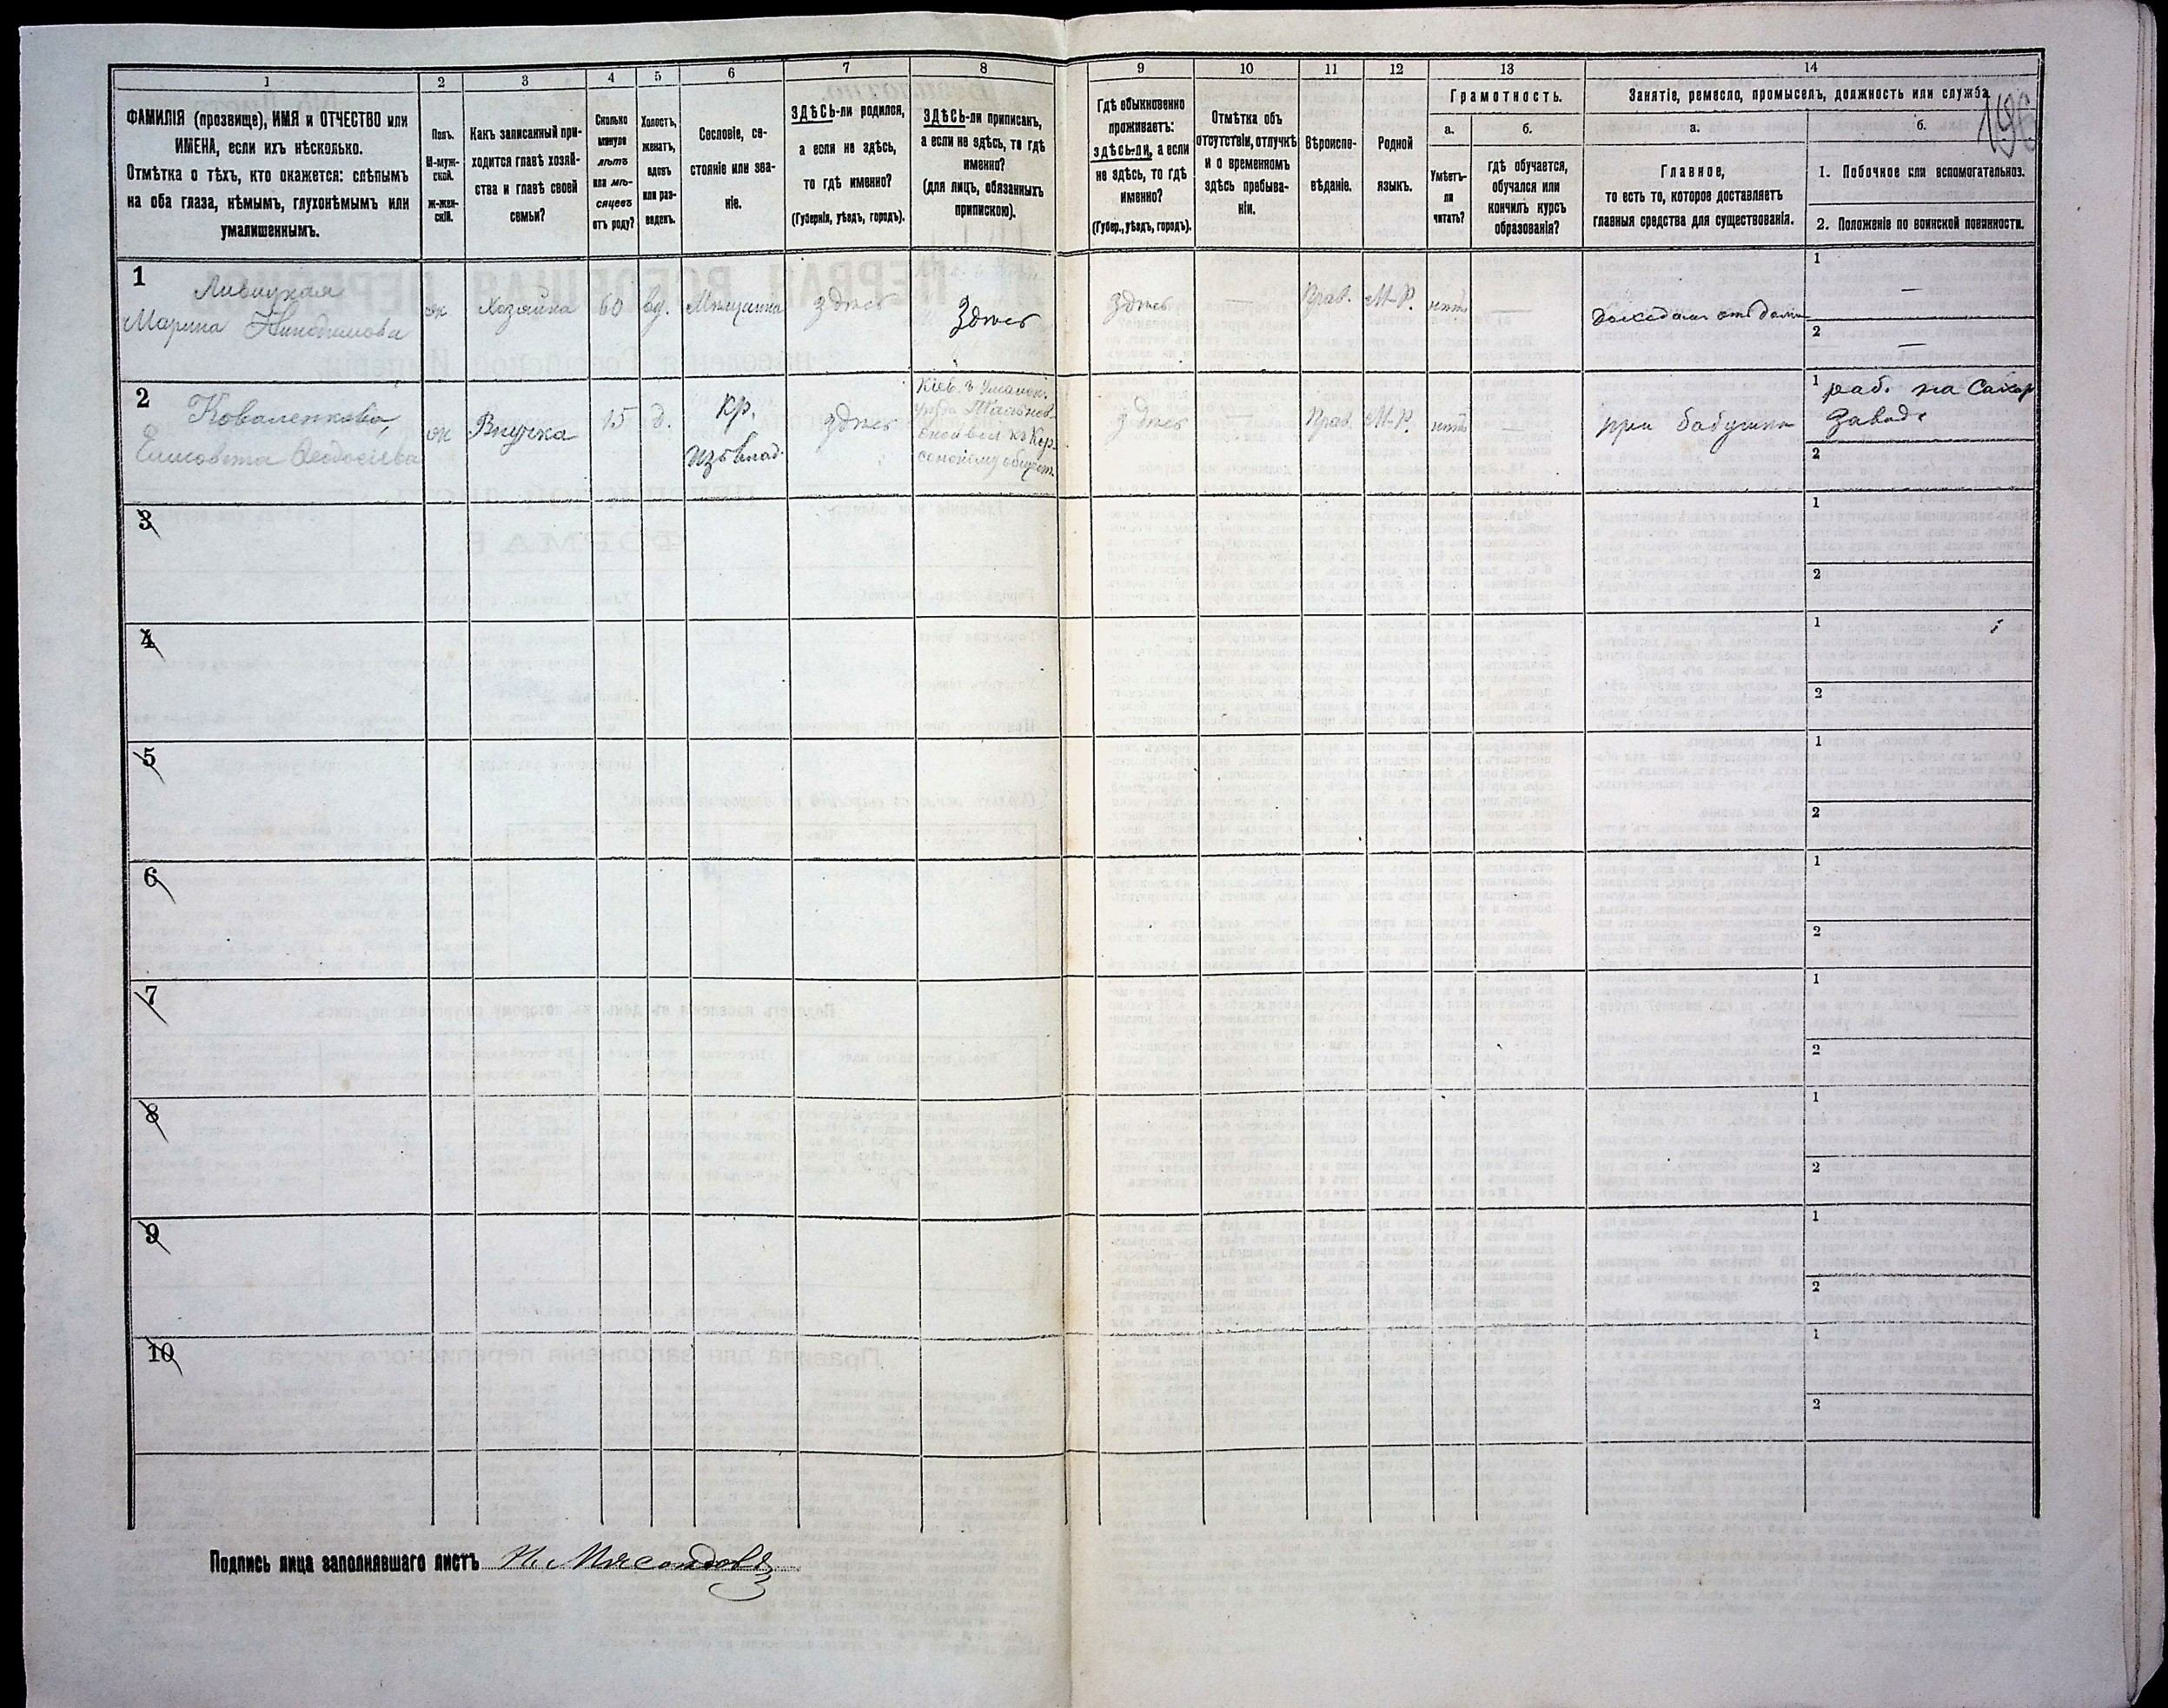 1 2 3 4 5 6 7 8 9 10 11 12 13 14
196
ФАМИЛІЯ (прозвище), ИМЯ и ОТЧЕСТВО или
ИМЕНА, если ихъ нѣсколько.
Отмѣтка о тѣхъ, кто окажется: слѣпымъ
на оба глаза, нѣмымъ, глухонѣмымъ или
умалишеннымъ.
Полъ.
М-муж-
ской.
ж-жен-
скій.
Какъ записанный при-
ходится главѣ хозяй-
ства и главѣ своей
семьи?
Сколько
минуло
лѣтъ
или мѣ-
сяцевъ
отъ роду?
Холостъ,
женатъ,
вдовъ
или раз-
веденъ.
Сословіе, со-
стояніе или зва-
ніе.
ЗДѢСЬ-ли родился,
а если не здѣсь,
то гдѣ именно?
(Губернія, уѣздъ, городъ).
ЗДѢСЬ-ли приписанъ,
а если не здѣсь, то гдѣ
именно?
(для лицъ, обязанныхъ
припискою).
Гдѣ обыкновенно
проживаетъ:
здѣсь-ли, а если
не здѣсь, то гдѣ
именно?
(Губер., уѣздъ, городъ).
Отмѣтка объ
отсутствіи, отлучкѣ
и о временномъ
здѣсь пребыва-
ніи.
Вѣроиспо-
вѣданіе.
Родной
языкъ.
Грамотность.
а.
Умѣетъ-
ли
читать?
б.
Гдѣ обучается,
обучался или
кончилъ курсъ
образованія?
Занятіе, ремесло, промыселъ, должность или служба.
а.
Главное,
то есть то, которое доставляетъ
главныя средства для существованія.
б.
1. Побочное или вспомогательное.
2. Положеніе по воинской повинности.
1
Марина
ж Хозяйка 60 вд. Мѣщанка здѣсь Здѣсь здѣсь — Прав. М-Р. нѣтъ —
1 —
2 —
2
Коваленкова,
Елисовета Ѳеодосіева
ж Внучка 15 д.
кр.
изъ влад.
здѣсь
Кіев. г. Уманск.
уѣзда
здѣсь — Прав. М-Р. нѣтъ —
при бабушкѣ
1 раб. на Сахар
Заводѣ
2
3 1
2
4 1
2
5 1
2
6 1
2
7 1
2
8 1
2
9 1
2
10 1
2
Подпись лица заполнявшаго листъ